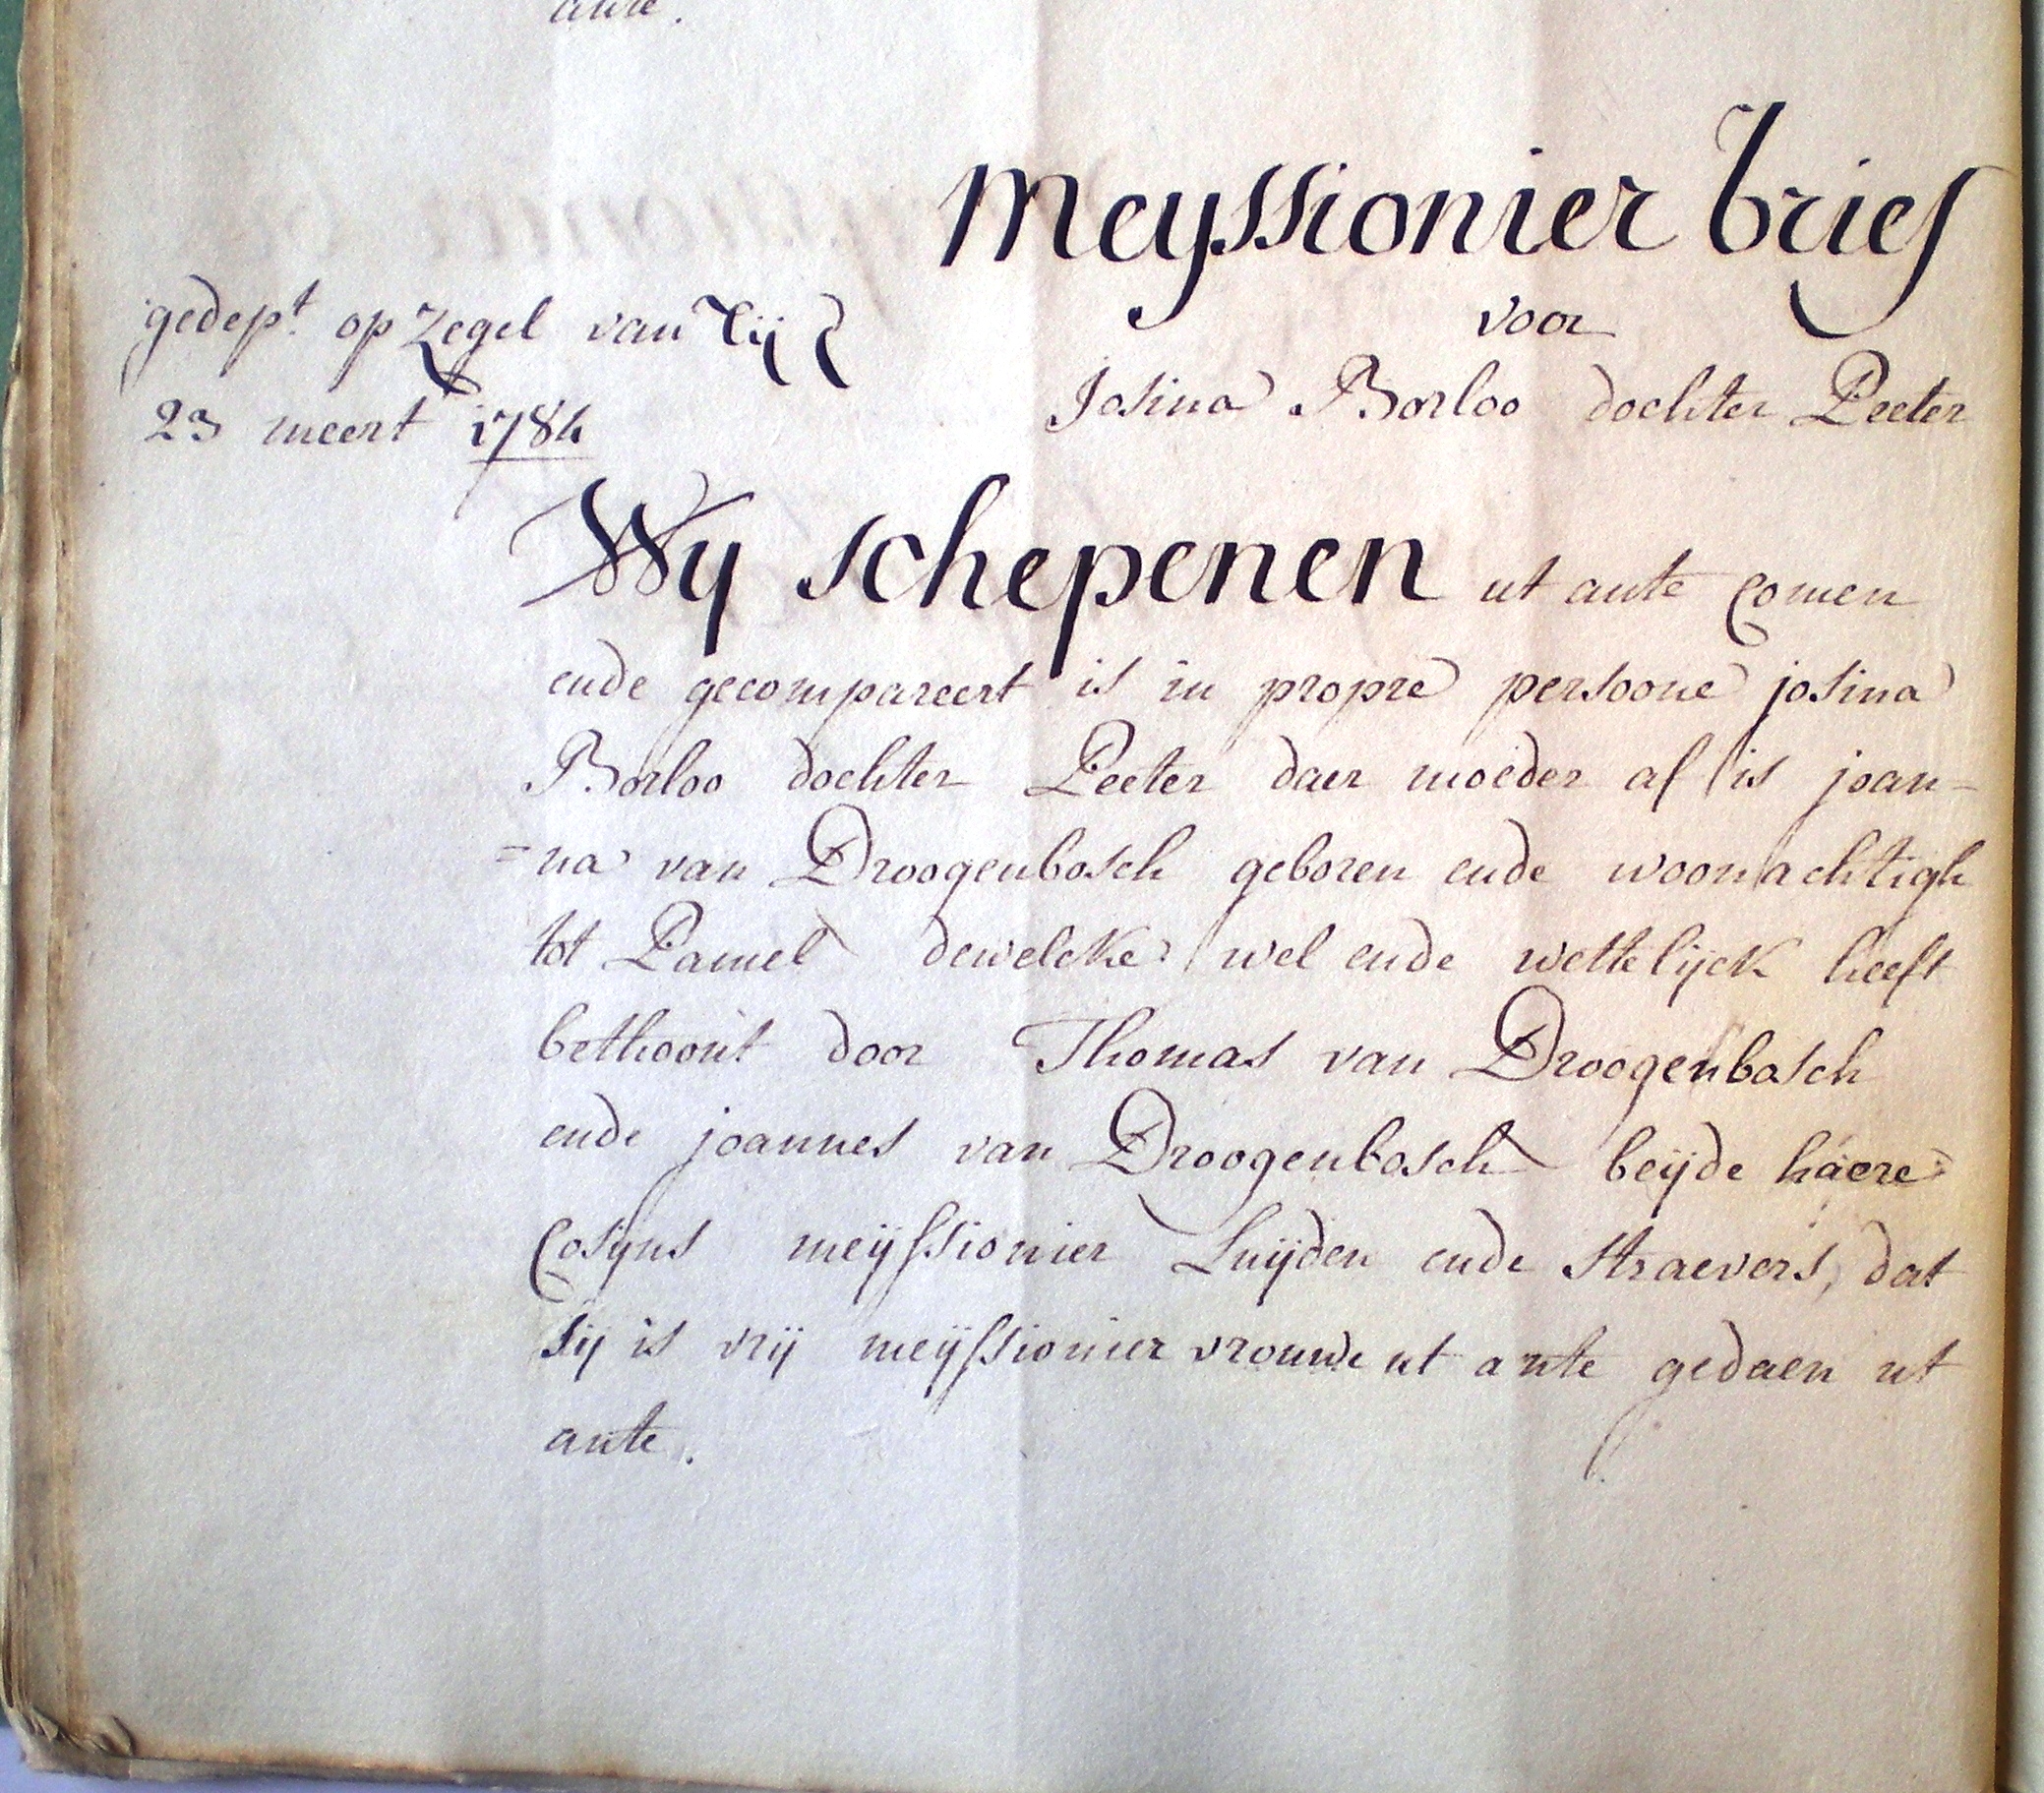 ante.
Meyssionier brief
voor
Josina Borloo dochter Peeter
gedept. op zegel van xij
23 meert 1784
Wy schepenen ut ante comen
ende gecompareert is in propre persoone josina
Borloo dochter Peeter daer moeder af is joan-
=na van Droogenbosch geboren ende woonachtigh
tot Pamel dewelcke wel ende wettelijck heeft
bethoont door Thomas van Droogenbosch
ende joannes van Droogenbosch beijde haere
Cosyns meijssionier Luijden ende straevers, dat
sij is vrij meijssionier vrouwe ut ante gedaen ut
ante.